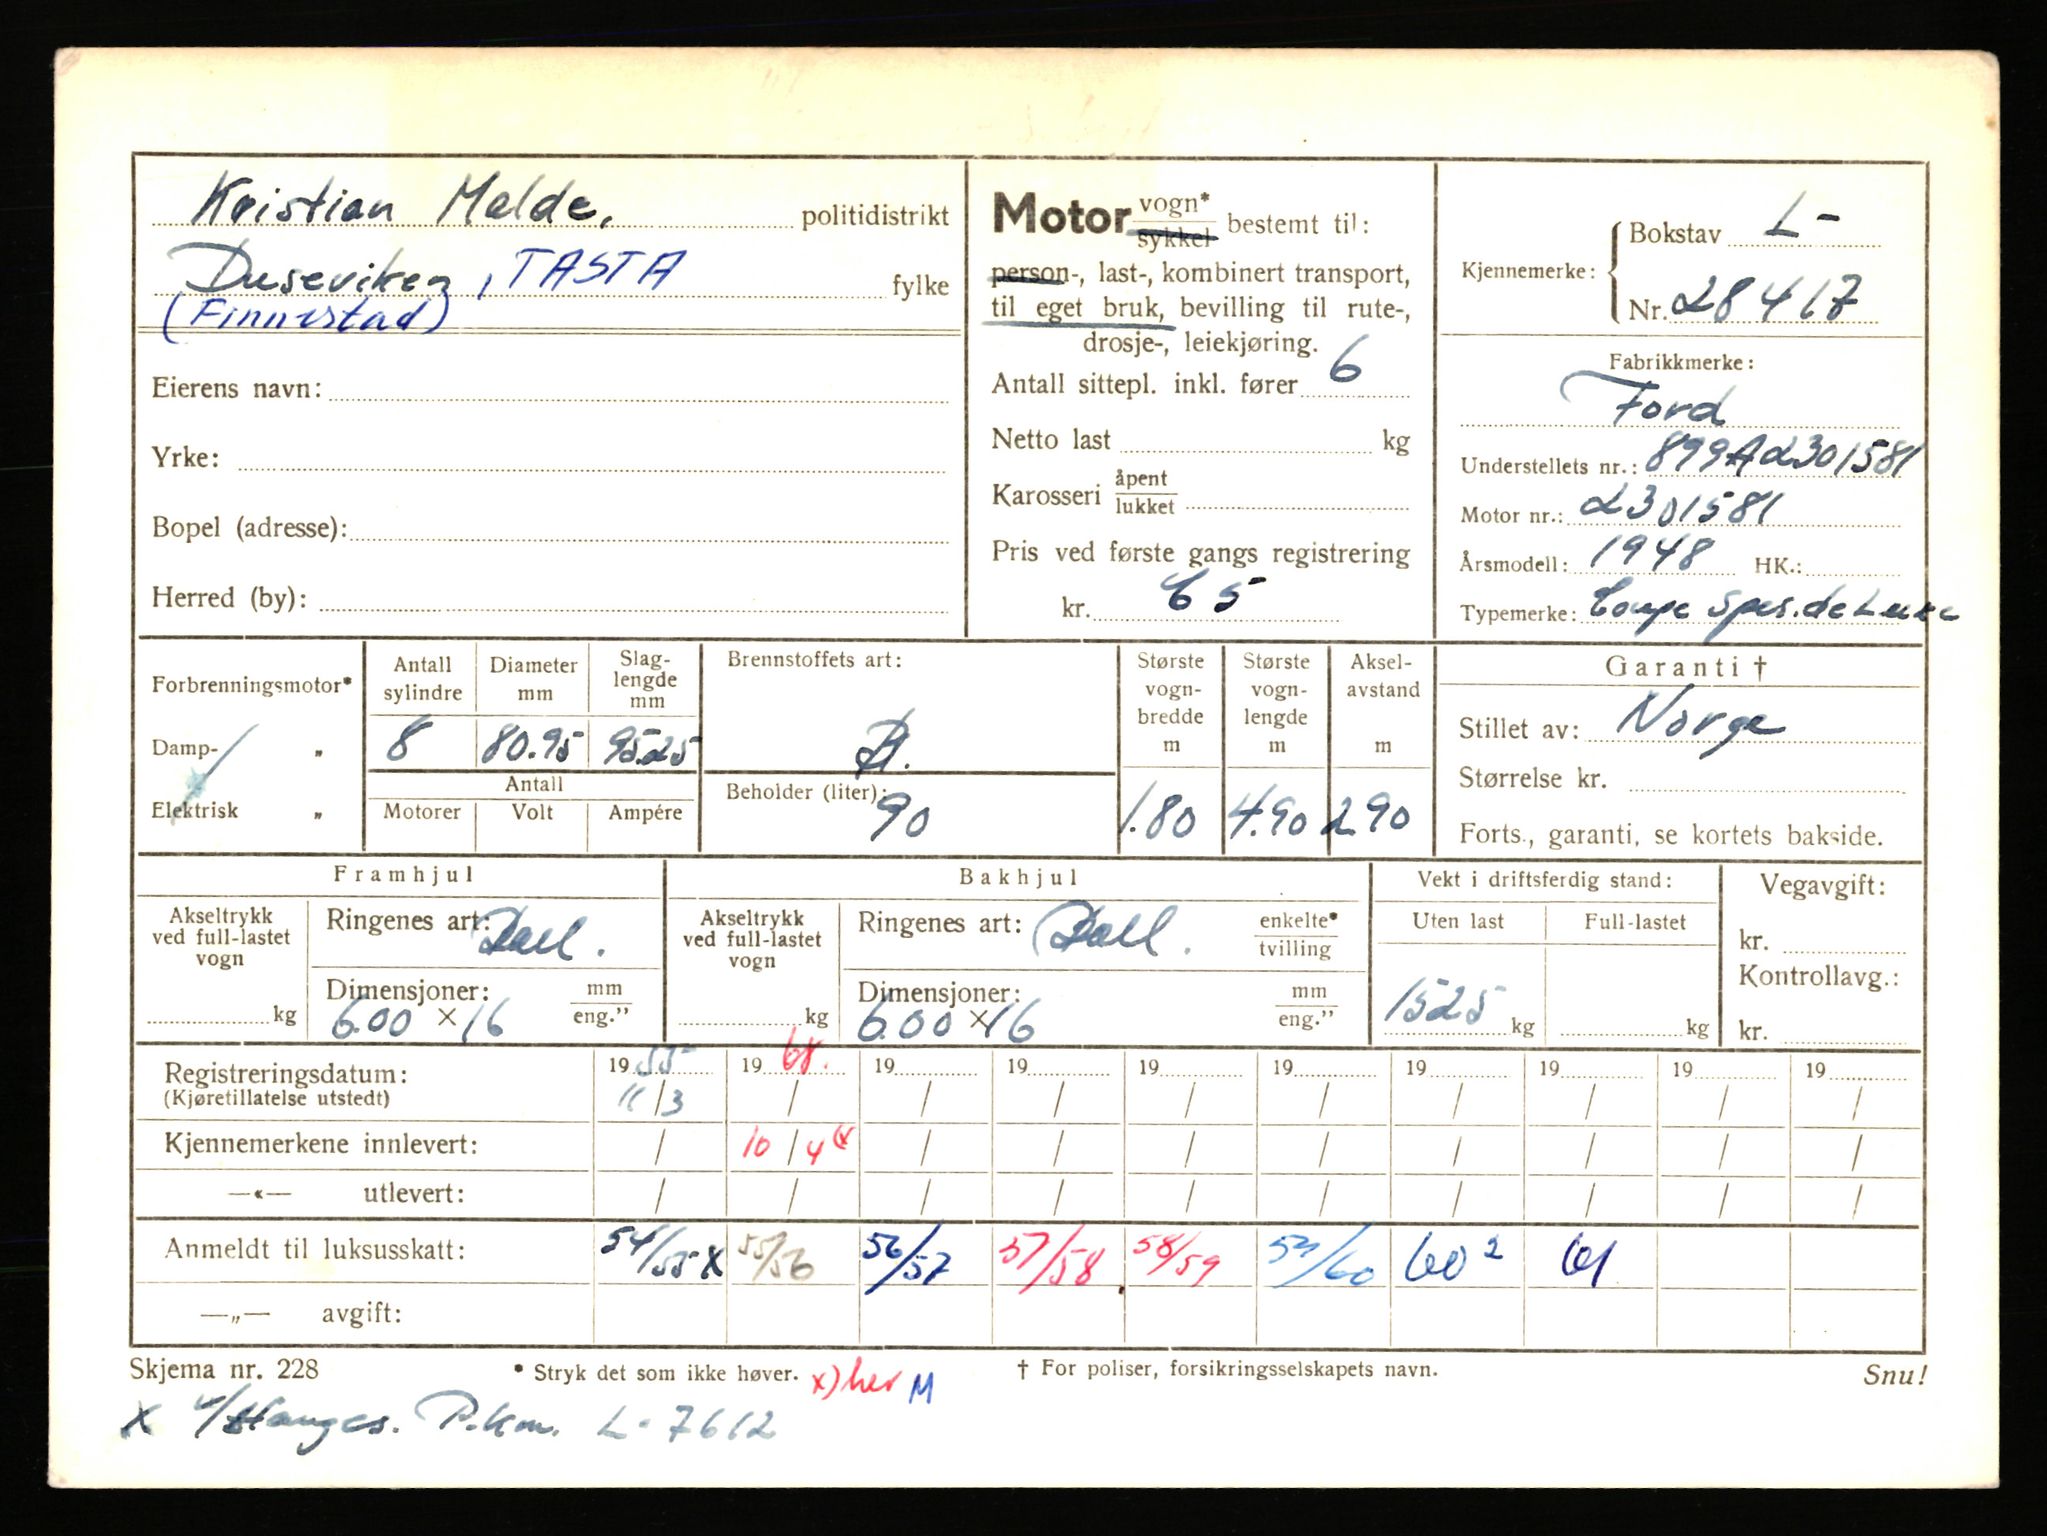 Kristian Melde, politidistrikt
Duseviken, TASTA fylke
(Finnestad)
Eierens navn:
Yrke:
Bopel (adresse):
Herred (by):
Motor vogn* sykkel bestemt til:
person-, last-, kombinert transport,
til eget bruk, bevilling til rute-,
drosje-, leiekjøring.
Antall sittepl. inkl. fører 6
Netto last kg
Karosseri åpent lukket
Pris ved første gangs registrering
kr. 65
Kjennemerke: Bokstav L-
Nr. 28417
Fabrikkmerke:
Ford
Understellets nr.: 899A2301581
Motor nr.: 2301581
Årsmodell: 1948 HK.:
Typemerke: Coupe Spes. de Luxe
Forbrenningsmotor*
Damp- „
Elektrisk „
Antall sylindre
8
Diameter mm
80.95
Slag-lengde mm
95.25
Antall
Motorer Volt Ampére
Brennstoffets art:
B.
Beholder (liter):
90
Største vogn-bredde m
1.80
Største vogn-lengde m
4.90
Aksel-avstand m
2.90
Garanti †
Stillet av: Norge
Størrelse kr.
Forts., garanti, se kortets bakside.
Framhjul
Akseltrykk ved full-lastet vogn
kg
Ringenes art:
Dimensjoner: mm eng."
6.00 × 16
Bakhjul
Akseltrykk ved full-lastet vogn
kg
Ringenes art: enkelte* tvilling
Dimensjoner: mm eng."
6.00 × 16
Vekt i driftsferdig stand:
Uten last Full-lastet
1525 kg kg
Vegavgift:
kr.
Kontrollavg.:
kr.
Registreringsdatum: 19 55 19 68. 19 19 19 19 19 19 19 19
(Kjøretillatelse utstedt) 11/3 / / / / / / / / /
Kjennemerkene innlevert: / 10/4 (x / / / / / / / /
—«— utlevert: / / / / / / / / / /
Anmeldt til luksusskatt: 54/55 X 55/56 56/57 57/58 58/59 59/60 60² 61
—„— avgift:
Skjema nr. 228 * Stryk det som ikke høver. x) her M † For poliser, forsikringsselskapets navn. Snu!
X P.km. L-7612